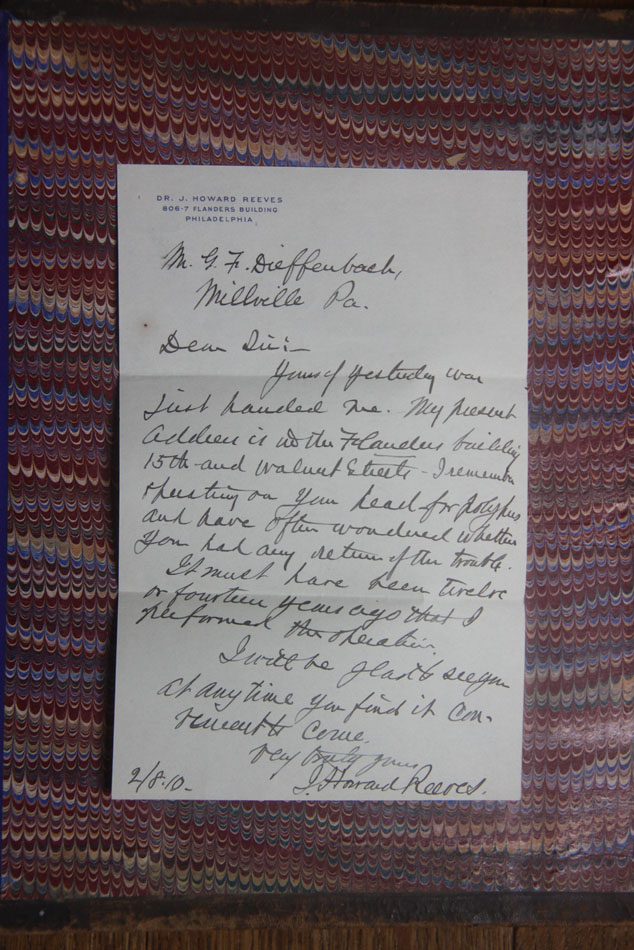 DR. J. HOWARD REEVES
806-7 FLANDERS BUILDING
PHILADELPHIA
M. G. F. Dieffenbach,
Millville Pa.
Dear Sir:-
Yours of yesterday was
just handed me. My present
address is in the Flanders building
15th and Walnut Streets - I remember
operating on your head for polypus
and have often wondered whether
you had any return of the trouble.
It must have been twelve
or fourteen years ago that I
performed the operation.
I will be glad to see you
at any time you find it con-
venient to come.
Very truly yours
J. Howard Reeves.
2/8.10-